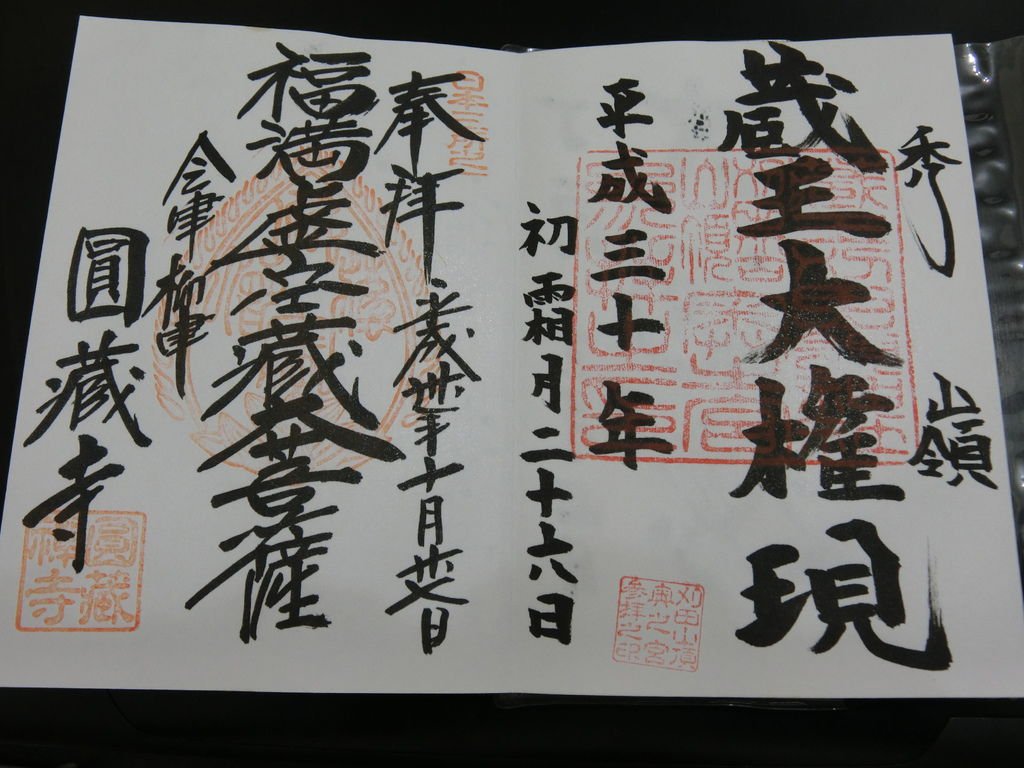 秀嶺
蔵王大権現
平成三十年
初霜月二十六日
刈田嶺
奥之宮
参拝之印
奉拝
卅年十月
福満虚空藏大菩薩
会津柳津
圓藏寺
圓藏
禅寺